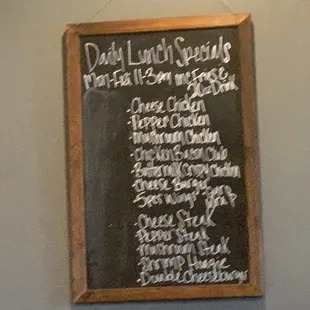 Daily Lunch Specials
Mon-Fri 11-3pm inc Fries
20oz Drink
-Cheese Chicken
-Pepper Chicken
-Mushroom Chicken
-Chicken Bacon Club
-Buttermilk Crispy Chicken
-Cheese Burger
-5pcs Wings
-Cheese Steak
-Pepper Steak
-Mushroom Steak
-Shrimp Hoagie
-Double Cheeseburger